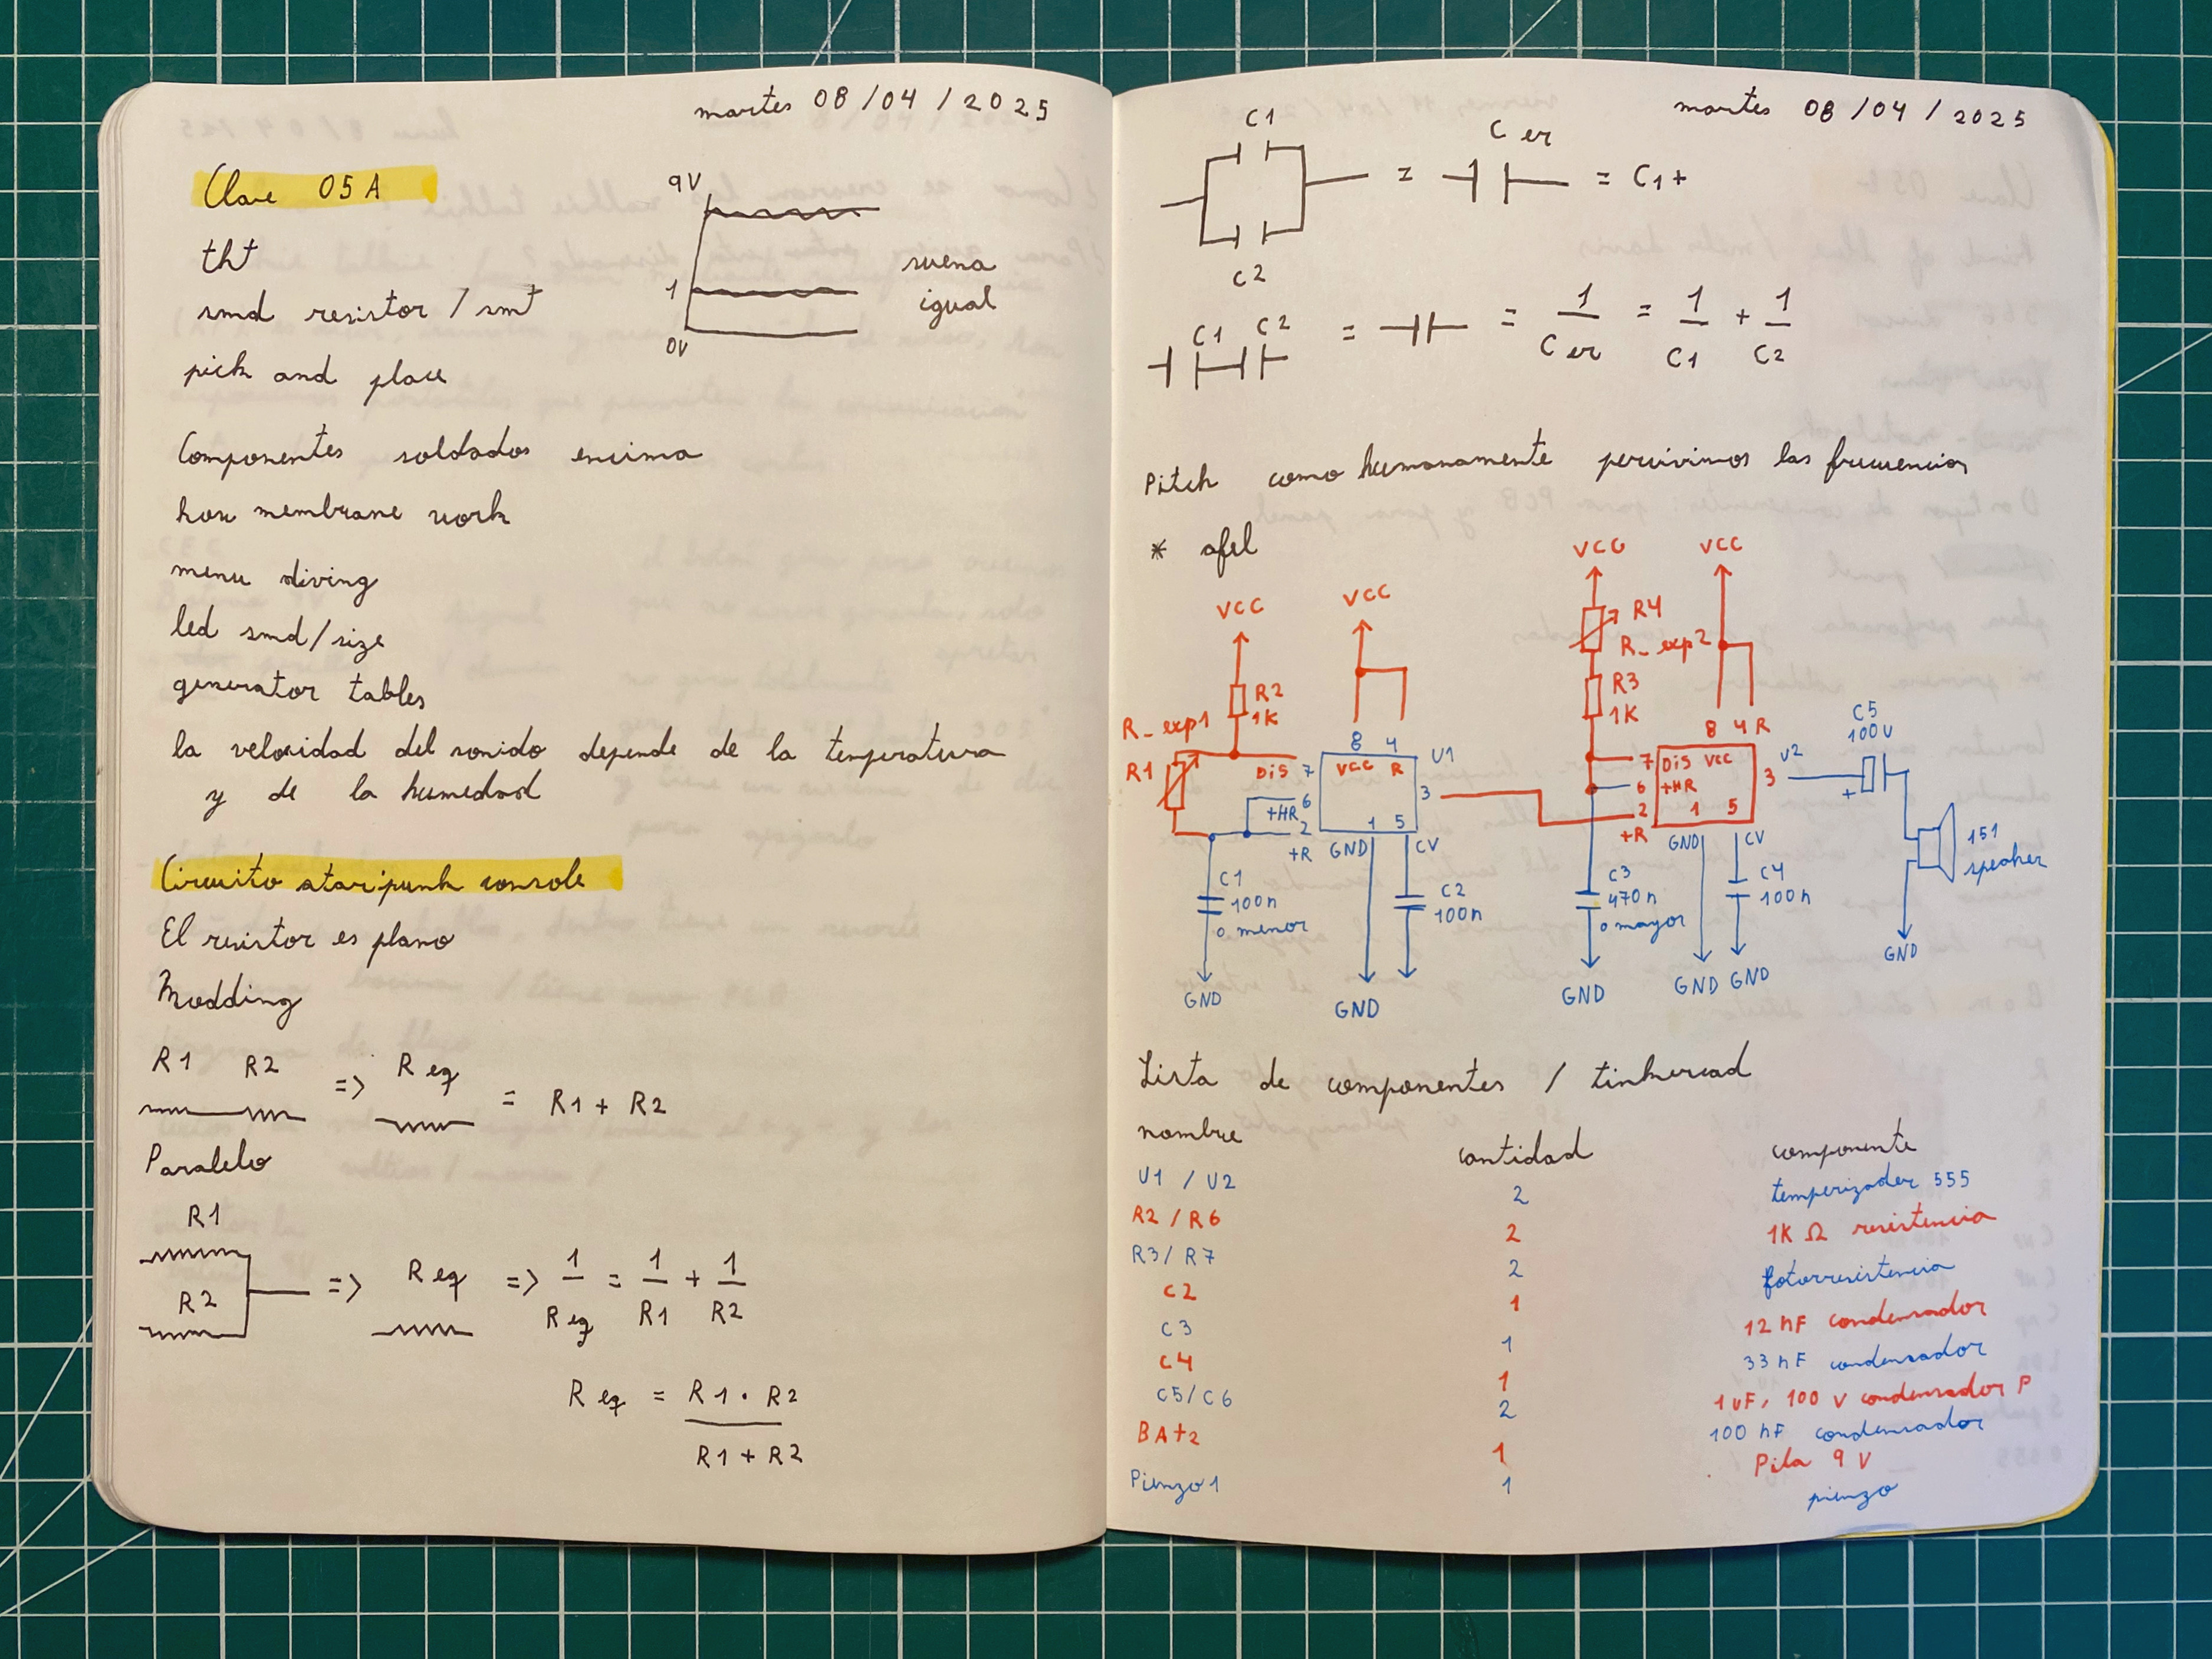 martes 08/04/2025
Clase 05A
9V
1
0V
suena
igual
tht
smd resistor / smt
pick and place
Componentes soldados encima
how membrane work
menu diving
led smd/size
generator tables
la velocidad del sonido depende de la temperatura
y de la humedad
Circuito atari punk console
El resistor es plano
Modding
R1 R2 => Req = R1 + R2
Paralelo
R1
R2
=> Req => 1/Req = 1/R1 + 1/R2
Req = R1 · R2 / R1 + R2
martes 08/04/2025
C1
C2
= Cer = C1+
C1 C2 = = 1/Cer = 1/C1 + 1/C2
Pitch como humanamente percivimos las frecuencias
* afel
VCC VCC VCC VCC
R4
R_exp2
R2
1K
R3
1K
R_exp1
R1
DIS 7
8 4
VCC R
U1
3
+HR 6
2
+R
1 5
GND CV
8 4 R
7 DIS VCC
6 +HR
2
+R
1 5
3
U2
GND CV
C5
100U
+
151
speaker
C1
100n
o menor
C2
100n
C3
470n
o mayor
C4
100n
GND GND GND GND GND GND
Lista de componentes / tinkercad
nombre cantidad componente
U1 / U2 2 temperizador 555
R2 / R6 2 1K Ω resistencia
R3 / R7 2 fotorresistencia
C2 1 12 nF condensador
C3 1 33 nF condensador
C4 1 1 uF, 100 V condensador P
C5/C6 2 100 nF condensador
BAt2 1 Pila 9 V
Pienzo1 1 pienzo